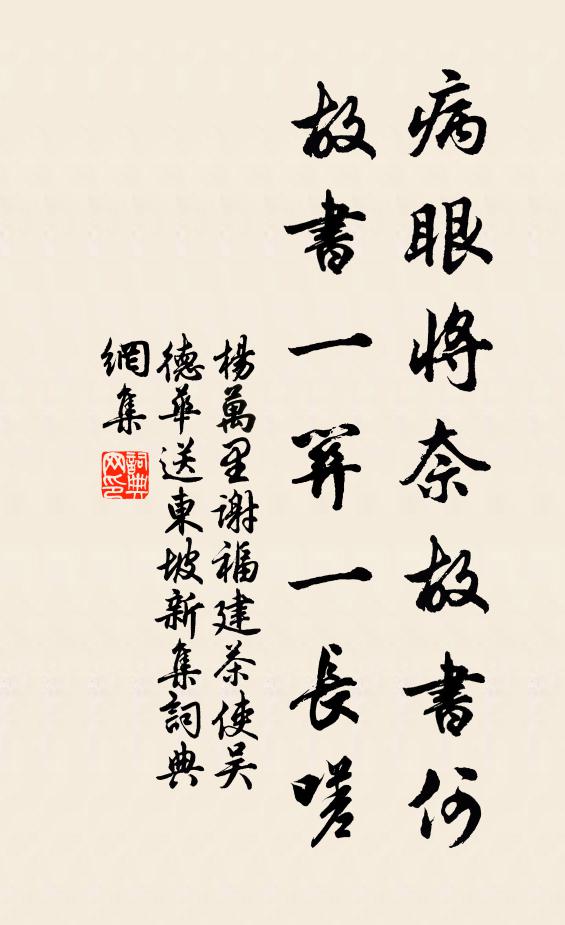 病眼将奈故書何
故書一開一長嗟
楊萬里謝福建茶使吴
德華送東坡新集詞典
網集
詞典
网印